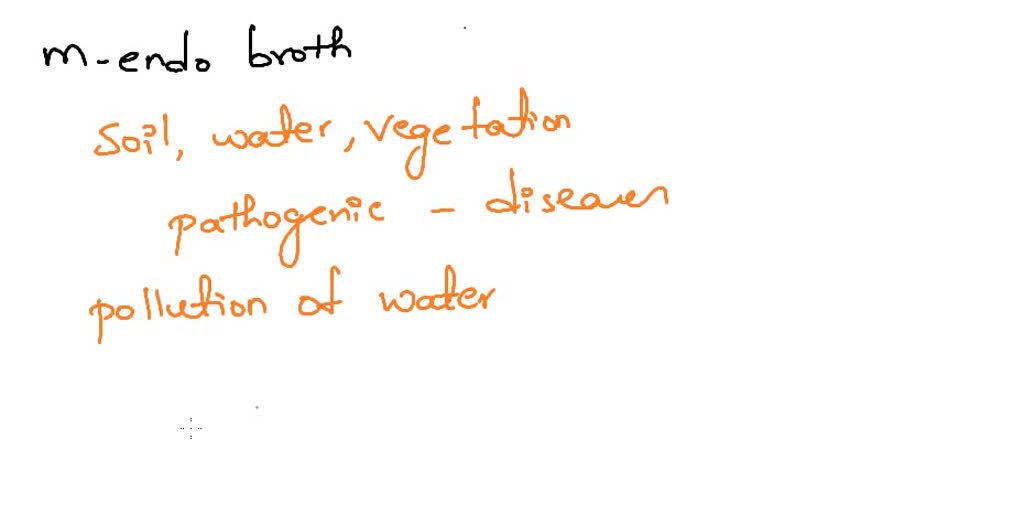 m-endo broth
Soil, water, vegetation
pathogenic - diseases
pollution of water